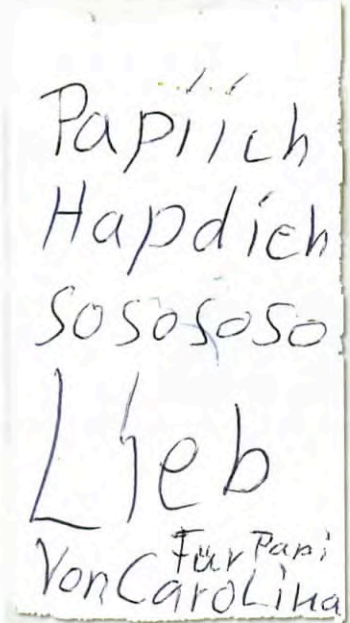 Papiich
Hapdich
sosososo
Lieb
Für Papi
Von Carolina